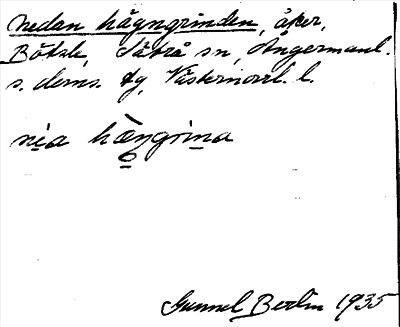 nedan hägngrinden, åker,
Böksle, Sätrå sn, Ångermanl.
s. doms. tg, Västernorrl. l.
nia hængrina
Gunnel Berlin 1935